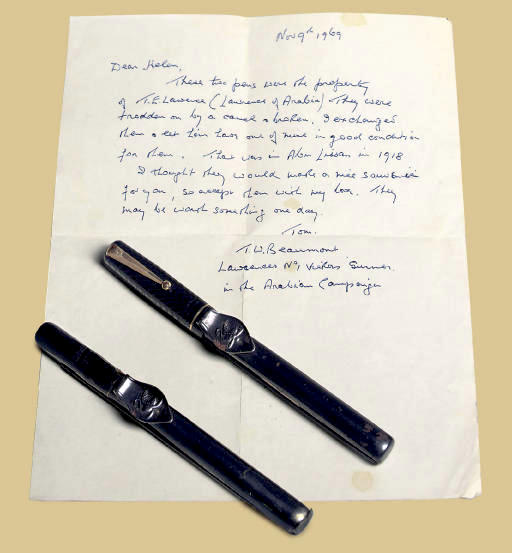 Nov 9th 1969
Dear Helen,
These two pens were the property
of T.E. Lawrence (Lawrence of Arabia) They were
trodden on by a camel & broken. I exchanged
them & let him have one of mine in good condition
for them. That was in Abu Lissan in 1918
I thought they would make a nice souvenir
for you, so accept them with my love. They
may be worth something one day.
Tom.
T.W. Beaumont
Lawrences No 1 Vickers Gunner.
in the Arabian Campaign